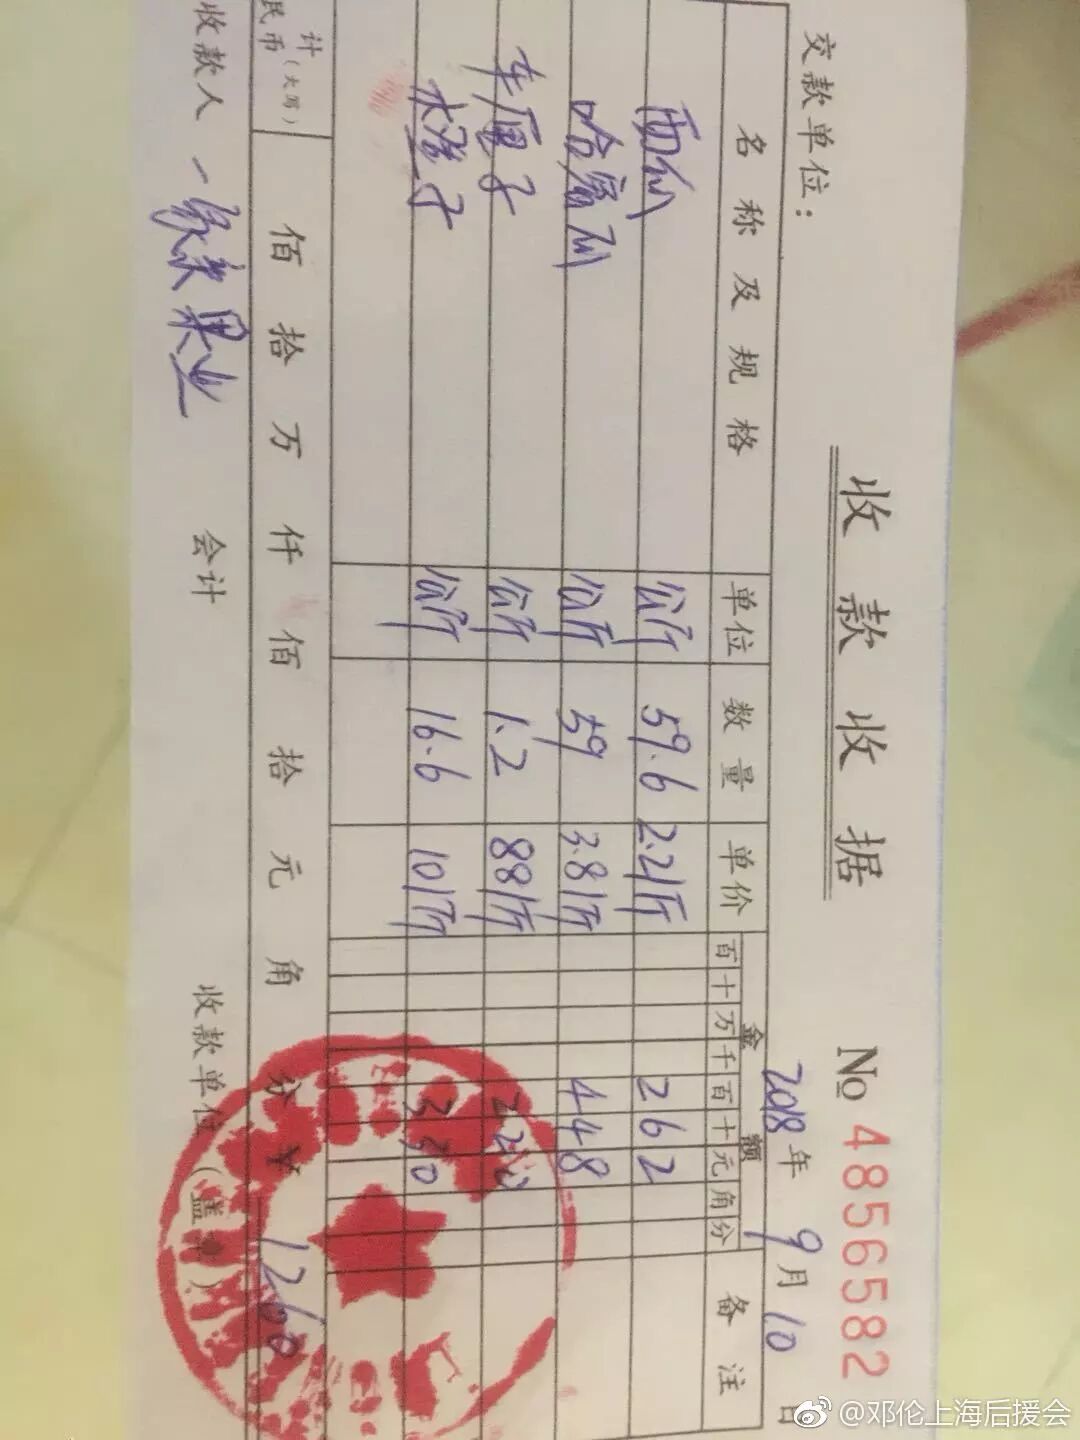 收款收据
No 4856582
交款单位：
2018年9月10日
名称及规格 单位 数量 单价 金额 备注
百十万千百十元角分
西瓜 公斤 59.6 2.2/斤 262
哈密瓜 公斤 59 3.8/斤 448
车厘子 公斤 1.2 88/斤 220
公斤 16.6 10/斤 330
计(大写)
民币 佰拾万仟佰拾元角分 ¥1260
收款人 一 果业 会计 收款单位(盖章)
@邓伦上海后援会